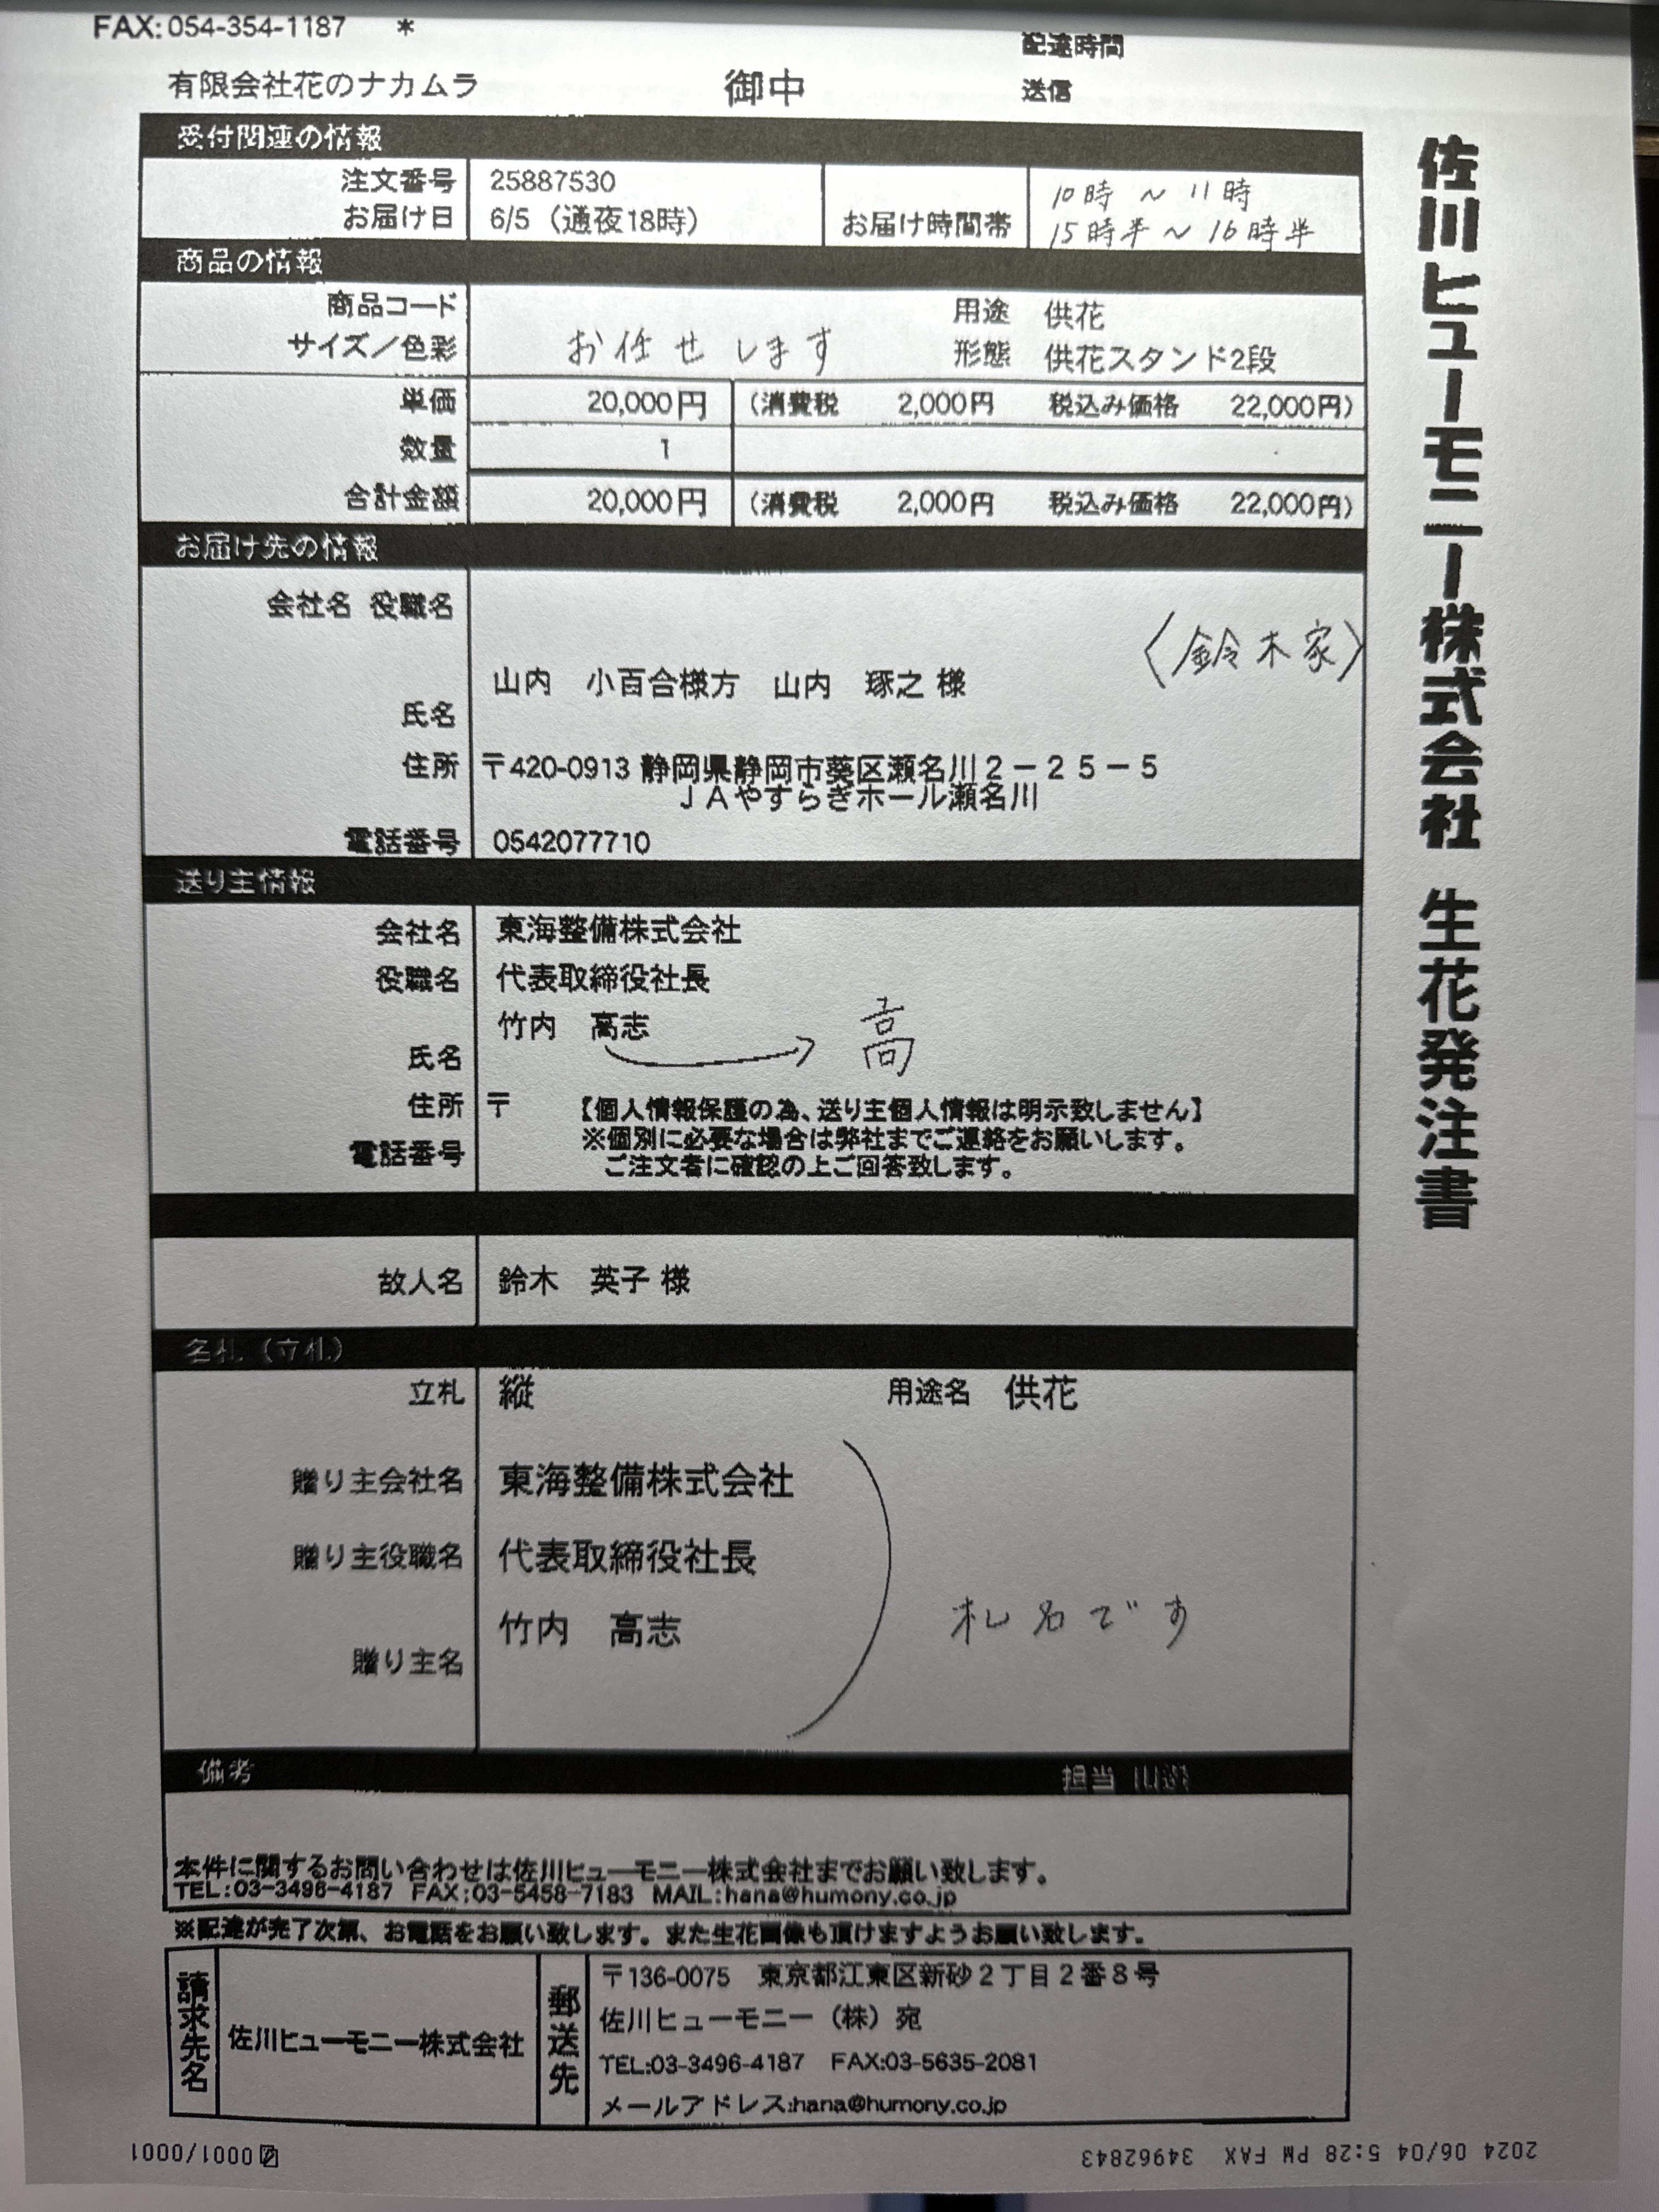 FAX:054-354-1187 *
配達時間
有限会社花のナカムラ 御中 送信
佐川ヒューモニー株式会社 生花発注書
受付関連の情報
注文番号 25887530
お届け日 6/5（通夜18時） お届け時間帯 10時 ～ 11時
15時半～16時半
商品の情報
商品コード 用途 供花
サイズ／色彩 お任せします 形態 供花スタンド2段
単価 20,000円 （消費税 2,000円 税込み価格 22,000円）
数量 1
合計金額 20,000円 （消費税 2,000円 税込み価格 22,000円）
お届け先の情報
会社名 役職名
〈鈴木家〉
山内 小百合様方 山内 琢之 様
氏名
住所 〒420-0913 静岡県静岡市葵区瀬名川２－２５－５
ＪＡやすらぎホール瀬名川
電話番号 0542077710
送り主情報
会社名 東海整備株式会社
役職名 代表取締役社長
竹内 高志 → 高
氏名
住所 〒 【個人情報保護の為、送り主個人情報は明示致しません】
※個別に必要な場合は弊社までご連絡をお願いします。
電話番号
ご注文者に確認の上ご回答致します。
故人名 鈴木 英子 様
名札（立札）
立札 縦 用途名 供花
贈り主会社名 東海整備株式会社
贈り主役職名 代表取締役社長
竹内 高志 札名です
贈り主名
備考 担当
本件に関するお問い合わせは佐川ヒューモニー株式会社までお願い致します。
TEL:03-3496-4187 FAX:03-5458-7183 MAIL:hana@humony.co.jp
※配達が完了次第、お電話をお願い致します。また生花画像も頂けますようお願い致します。
請求先名 佐川ヒューモニー株式会社 郵送先
〒136-0075 東京都江東区新砂２丁目２番８号
佐川ヒューモニー（株）宛
TEL:03-3496-4187 FAX:03-5635-2081
メールアドレス:hana@humony.co.jp
2024 06/04 5:28 PM FAX 34962843 0001/0001